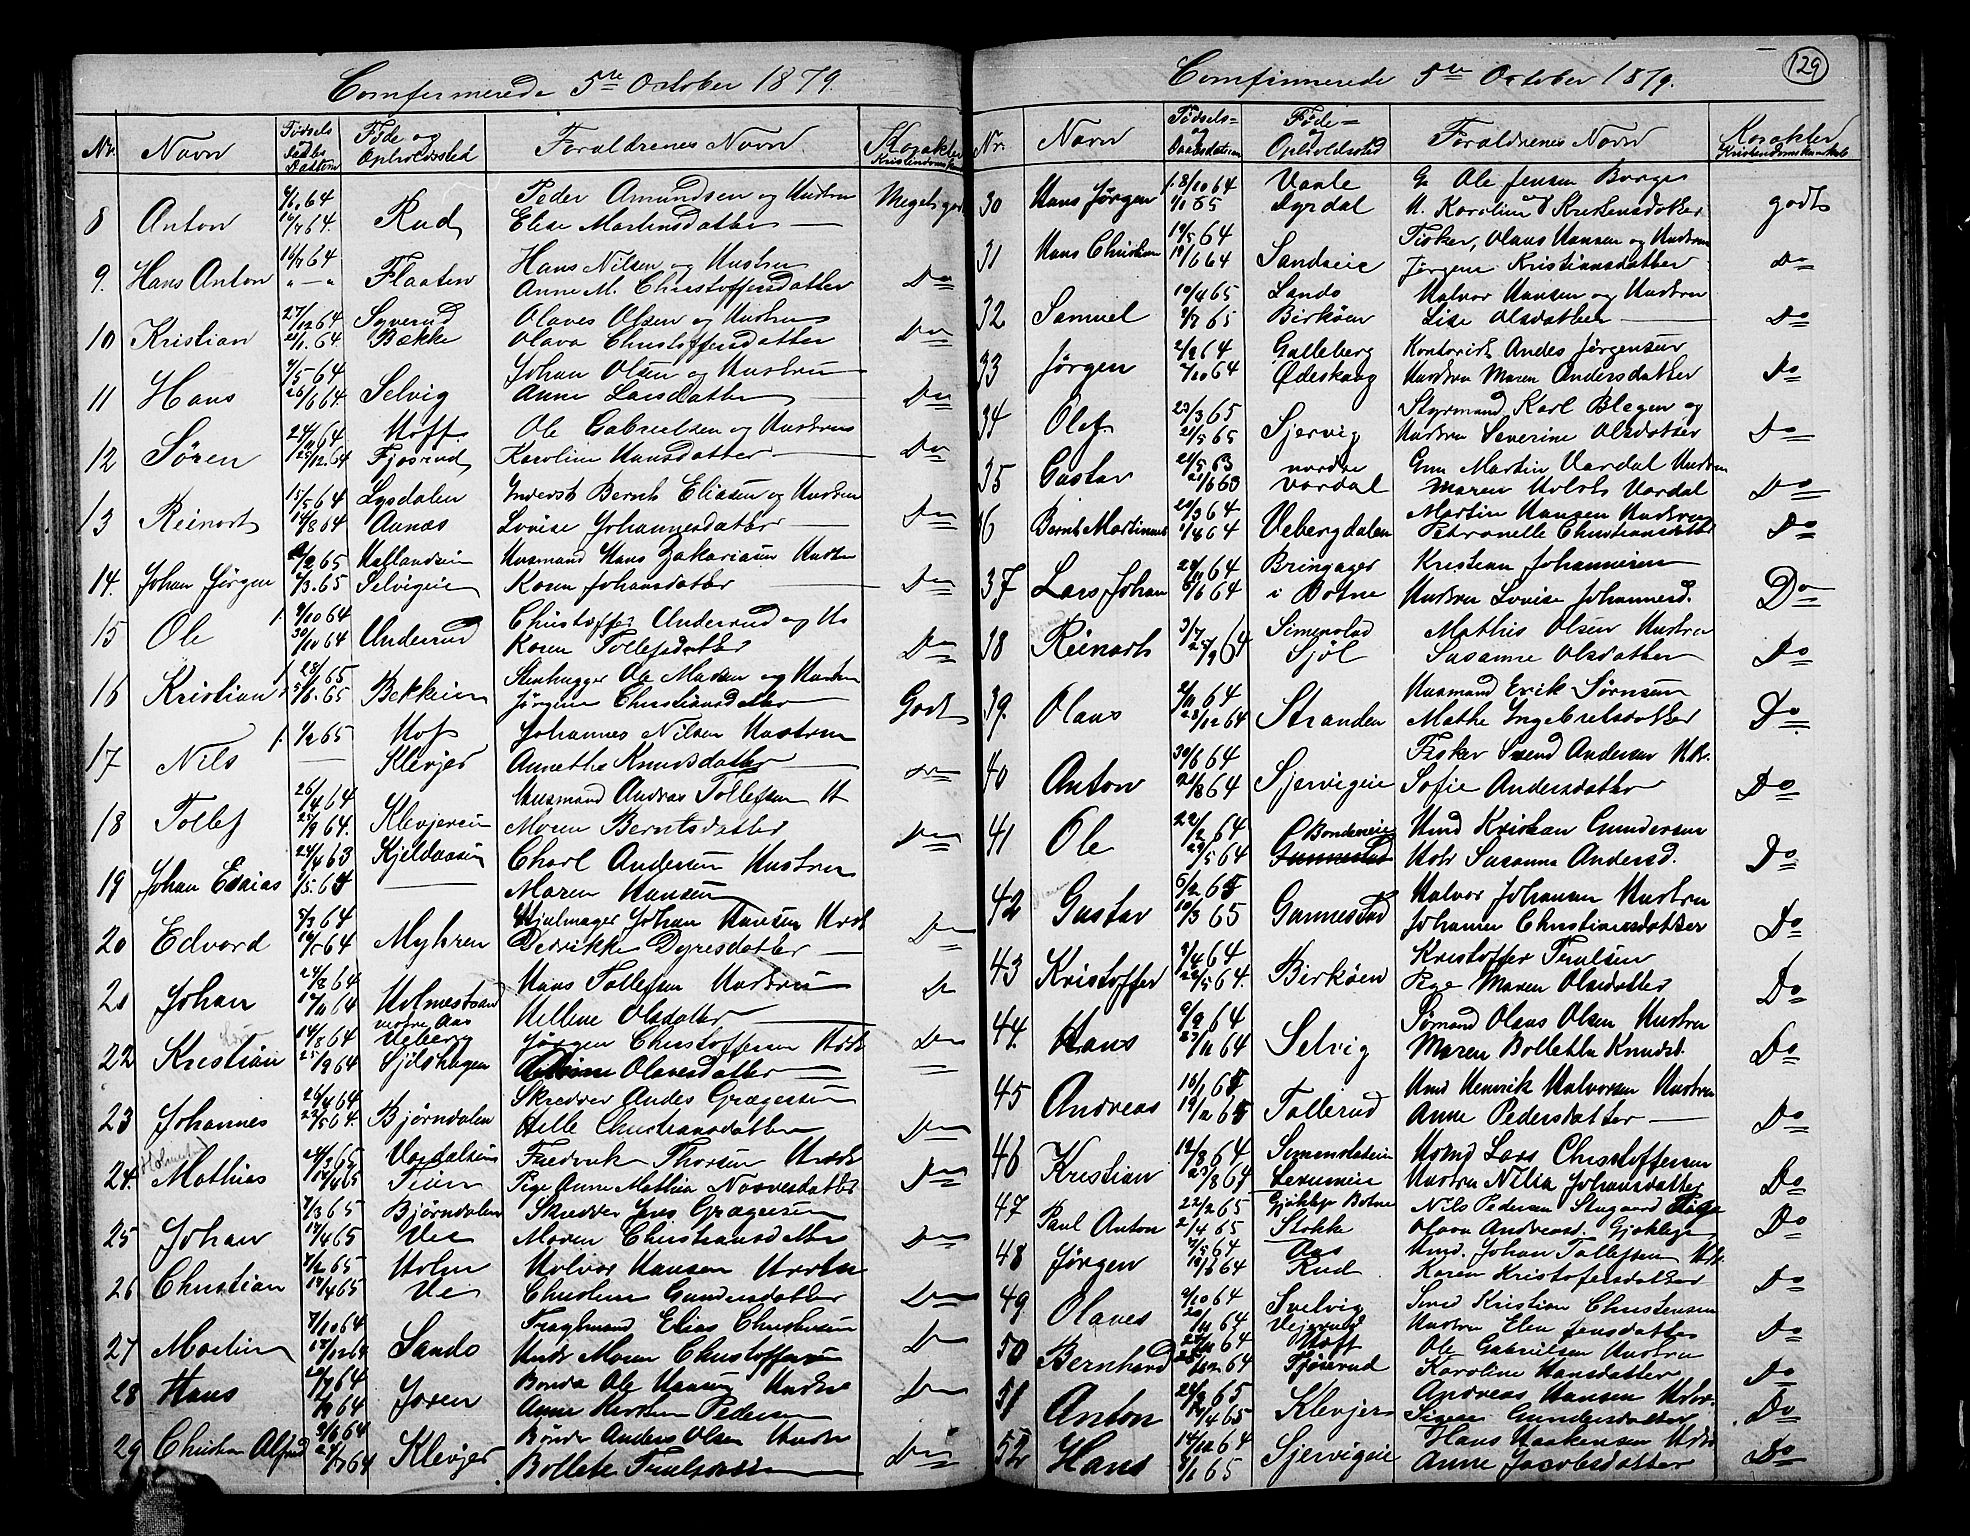 Comfermerede 5te October 1879.
Nr. Navn Fødsels Daabs Dattoen Føde og Opholdssted Foraldrenes Navn. Karakter Kristendoms
8 Anton 6/6 64 Rud Peder Amundsen og Hustru Meget godt
14/7 64. Elise Martinsdatter
9. Hans Anton 16/7 64 Flaaten Hans Nilsen og Hustru Do
" — " Anne M. Christoffersdatter
10 Kristian 27/12 64 Syverud Olaves Olsen og Hustru Do
2/1. 64 Bække Olava Christoffersdatter
11 Hans 7/5 64 Selvig Johan Olsen og Hustru Do
26/6 64 Anne Larsdatter
12 Søren 24/9 64 Hoff Ole Gabrielsen og Hustru Do
25/12.64 Fjøsrud Karoline Hansdatter
13 Reinart 15/5 64 Lysdalen Inderst Bernt Eliasen og Hustru Do
14/8 64 Aanæs Lovise Johannesdatter
14. Johan Jørgen 2/2 65 Hallandseie Husmand Hans Zakariasen Hustru Do
5/3. 65 Selvigeie Karen Johansdatter
15 Ole 1. 9/10 64 Underrud Christoffer Underrud og Hs Do
30/10 64 Karen Tollefsdatter
16 Kristian 1. 28/ 65 Bekkeien Stenhugger Ole Madsen og Hustru Godt
5/6. 65 Jørgine Christiansdatter
17 Nils 1. 1/2 65 Hof Johannes Nilsen Hustru Do
— Klevjer Annethe Knudsdatter
18 Tollef 26/4 64 Klevjereie Husmand Andreas Tollefsen H Do
25/9 64. Maren Berntsdatter
19 Johan Esaias 24/4 63 Kjeldaasen Charl Andersen Hustru
/5.64 Maren Hansen
20 Edvard 5/2 64 Myhren Hjulmager Johan Hansen Hust Do
16/5 64 Dedrikke Dyresdatter
21 Johan 24/8 64 Holmestrand Hans Tollefsen Hustru Do
17/11 64 Hellene Olsdatter
22 Kristian 14/8 64 vestre Aas Veberg Jørgen Christoffersen Hust Do
25/9 64 Sjølshagen Olavesdatter
23 Johannes 26/4 64 Bjørndalen Skredder Andes Grægersen Do
22/5 64. Helle Christiansdatter
24. Mathias 24/3 65 Vardalseie Fredrik Thorsen Do
17/4 65 Tien Pige Anne Mathia Nosvesdatter
25 Johan 7/3 65 Bjørndalen Skredder Jens Grægersen Do
17/4 65 Vee Maren Christiansdatter
26 Christian 7/2 65 Holm Halvor Hansen Hustru Do
17/4 65 Ve Christine Gundersdatter
27 Martin 7/10 64 Sando Fragtmand Elias Christensen Do
17/12 64 Hustr Maren Christoffersen
28 Hans 20/7 64 Joren Bonde Ole Hansen Hustru Do
/9 64 Anne Kirstine Pedersen
29 Christian Alfred 2/6 64 Klevjer Bonde Anders Olsen Hustru Do
2/7 64 Bollete Trulsdatter
Comfirmerede 5te October 1879.
129
Nr. Navn Fødsels- og Daabsdatoen Føde- og Opholdssted Foraldrenes Navn Karakter Kristendomskunskab
30 Hans Jørgen 1. 8/10 64 Vaale G Ole Jensen Borge godt
1/1 65 Dyrdal H. Karoline Kristensdatter
31 Hans Christian 19/5 64 Sandseie Fisker, Olaus Hansen og Hustru Do
19/6 64 Jørgine Kristiansdatter
32 Samuel 10/4 65 Sando Halvor Hansen og Hustru Do
2/7 65 Birkøen Lise Olsdatter
33 Jørgen 2/2 64 Galleberg Kontorist Andes Jørgensen Do
7/10 64 Ødeskoug Hustru Maren Andersdatter
34 Olef 23/3 65 Sjervig Styrmand Karl Blegen og Do
21/5 65 Hustru Severine Olsdatter
35 Gustav 24/5 63 nordre Gm Martin Vardal Hustru Do
21/6 63 Vardal Maren Holst Vardal
36 Bernt Martinus 20/3 64 Vebergdalen Martin Hansen Hustru Do
1/4 64 Petronelle Christiansdatter
37 Lars Johan 24/4 64 Bringager Kristian Johannesen Do
5/6 64 i Botne Hustru Lovise Johannesd.
38 Reinart 3/7 64 Simenstad Mathis Olsen Hustru Do
25/9 Sjøl Susanne Olsdatter
39. Olaus 2/11 64 Stranden Husmand Erik Sørnsen Do
23/12 64 Mathe Ingebretsdatter
40 Anton 30/6 64 Sjervigeie Fisker Svend Andersen Hst. Do
21/8 64 Sofie Andersdatter
41 Ole 22/2 64 Bondeneie Hmd Kristian Gundersen Do
29/5 64 Gunnestad Hstr Susanna Andersd.
42 Gustav 5/2 65 Gunnestad Halvor Johansen Hustru Do
10/3 65 Johanne Christiansdatter
43 Kristoffer 2/4 64 Birkøen Kristoffer Trulsen Do
22/5 64. Pige Maren Olsdatter
44. Hans 9/9 64 Selvig Sømand Olaus Olsen Hustru Do
23/11 64 Maren Bolletta Knudsd.
45 Andreas 16/1 65 Tollerud Hmd Henrik Halvorsen Hustru Do
19/11 65 Anne Pedersdatter
46 Kristian 12/8 64 Simenstadeie Hsmd Lars Christoffersen Do
23/8 64 Hustru Nilia Johansdatter
47 Paul Anton 22/2 65 Gjøklep Botne Nils Pedersen Stugaard Pige Do
2/4 65 Stokke Olava Andreasd. Gjøklep
48 Jørgen 9/5 64 Aas Hmd. Johan Tollefsen Hst Do
19/6 64 Rud Karen Kristofersdatter
49 Olaves 2/10 64 Svelvig Smed Kristian Christensen Do
20/11 64 Vejerud Hustru Elen Jensdatter
50 Bernhard 25/11 64 Hoft Ole Gabrielsen Hustru Do
25/12 64 Fjøsrud Karoline Hansdatter
51 Anton 24/2 65 Klevjer Andreas Hansen Hstr. Do
17/4 65 Sigrie Gundersdatter
52 Hans 14/12 64 Sjervigeie Hans Haakensen Hstr Do
8/1 65 Anne Jacobsdatter